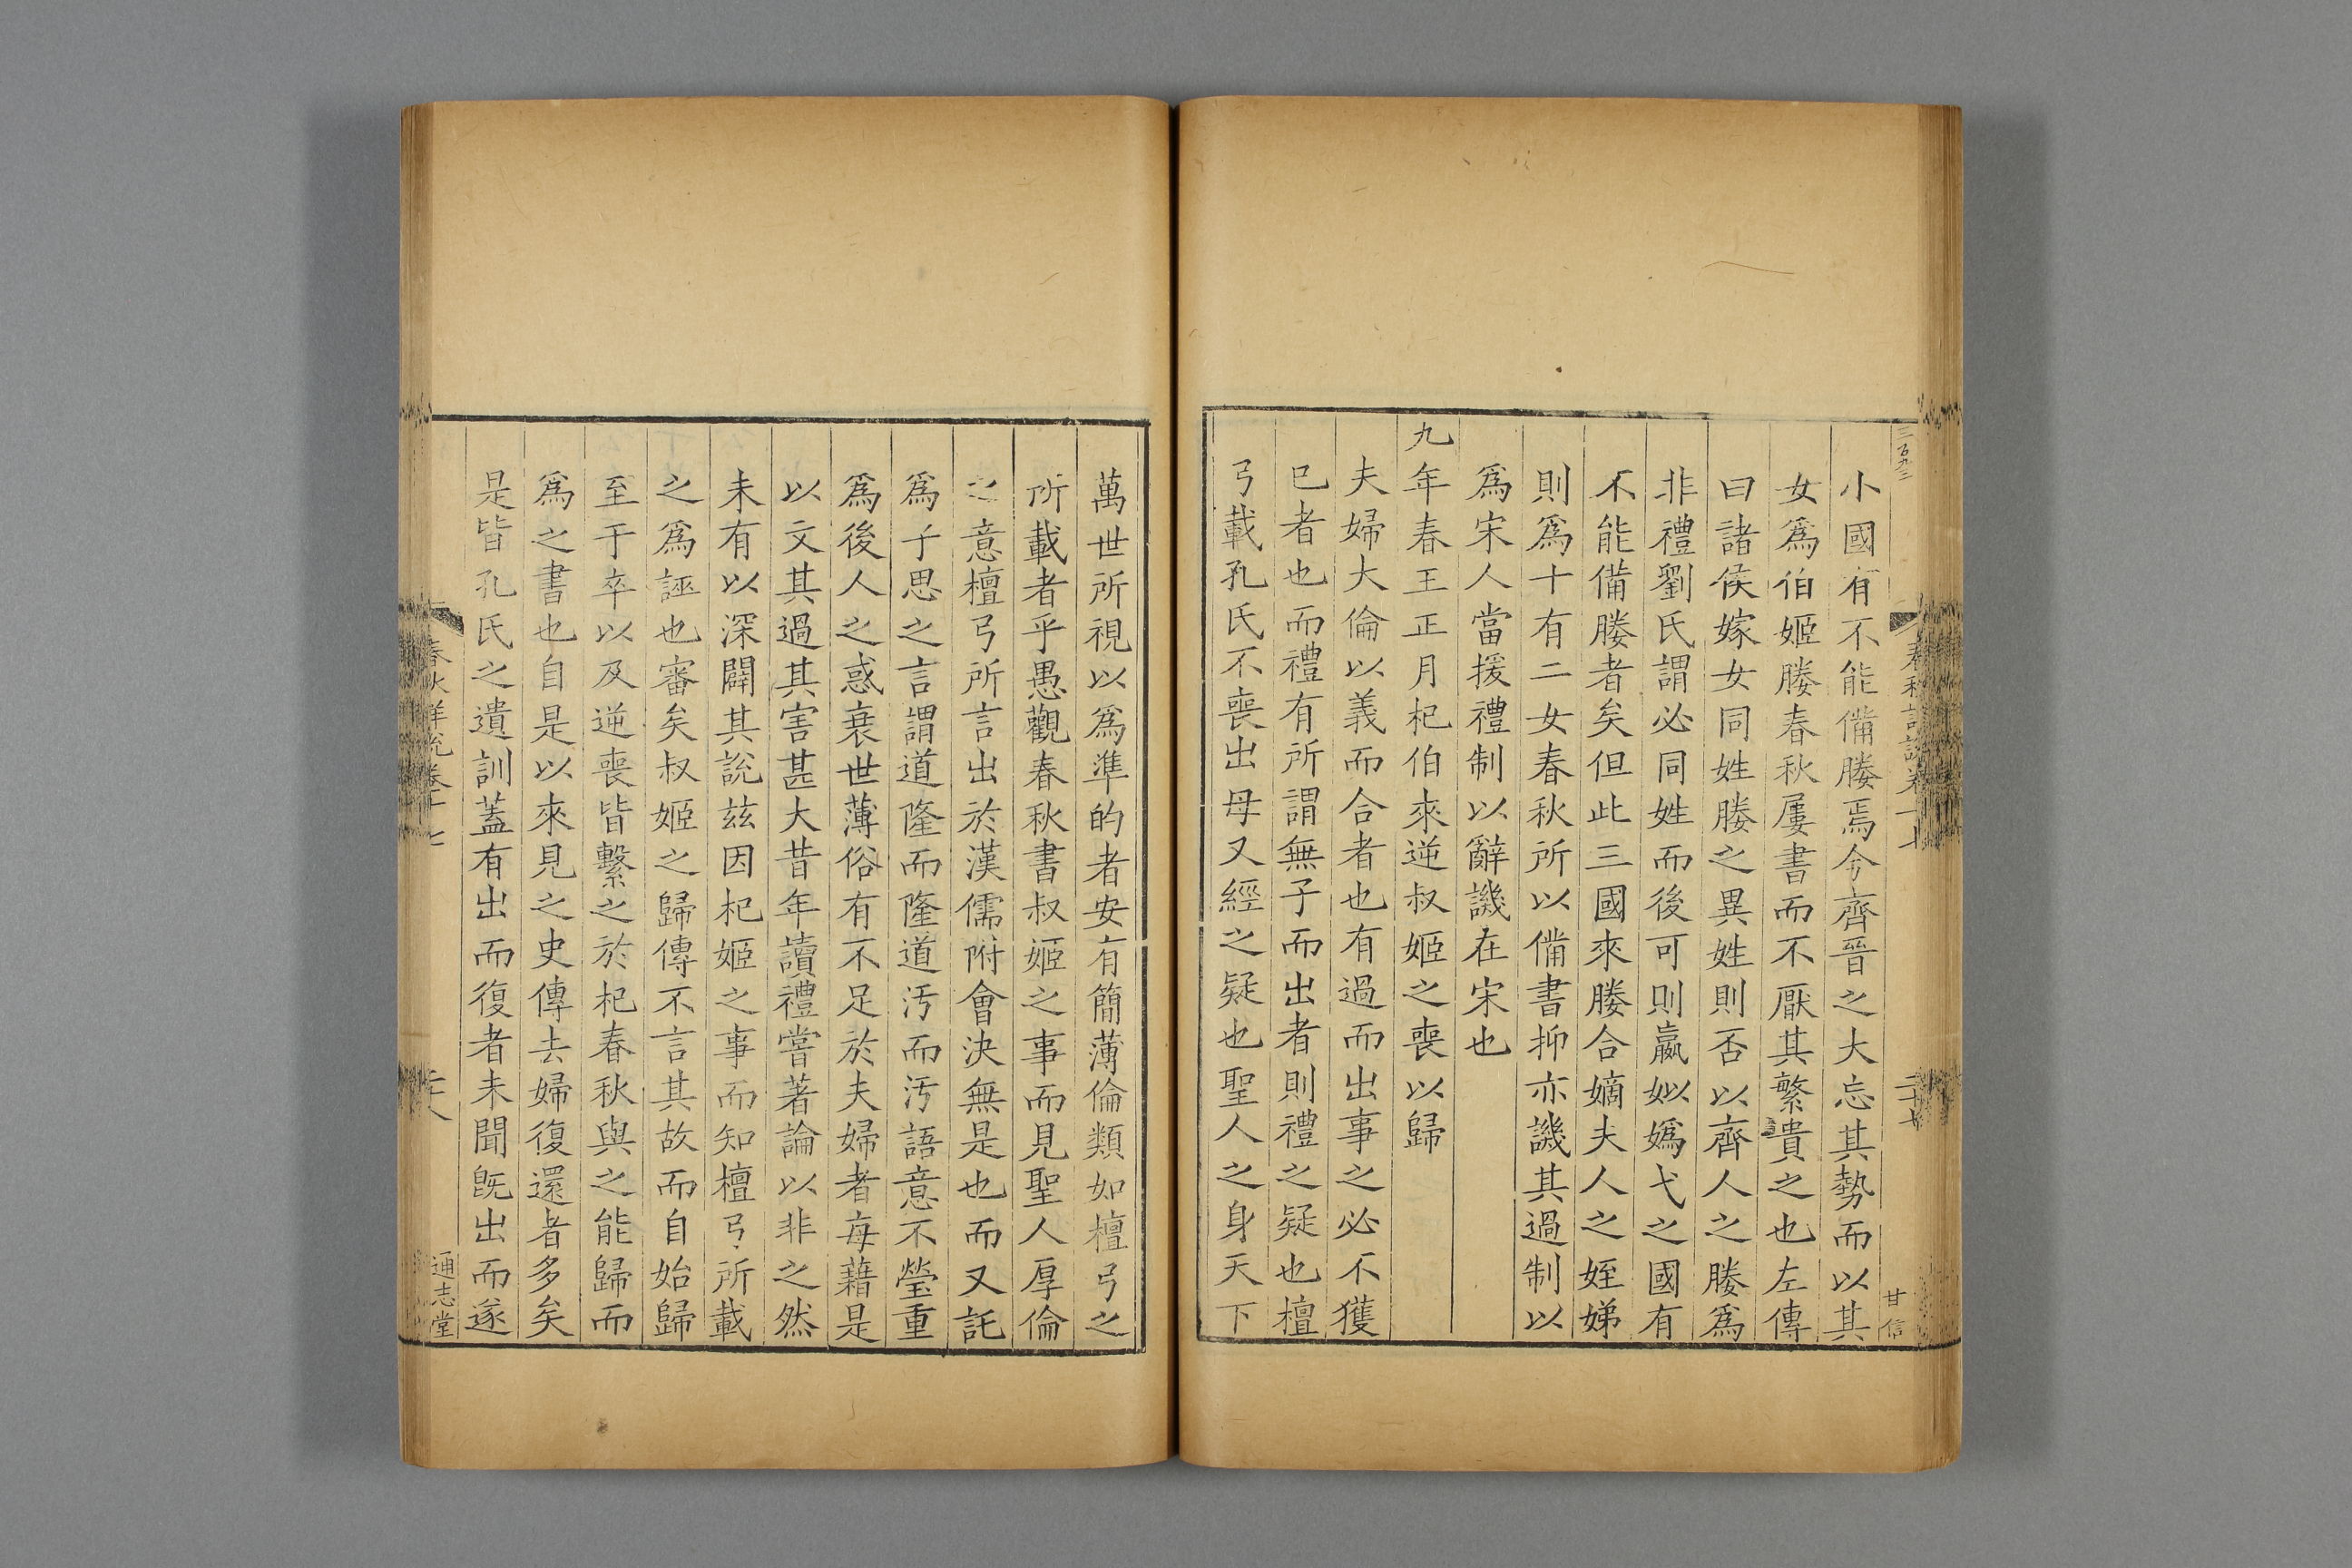 三百九三
春秋詳說卷十七
二十七
甘信
小國有不能備媵焉今齊晉之大忘其勢而以其
女爲伯姬媵春秋屢書而不厭其繁貴之也左傳
曰諸侯嫁女同姓媵之異姓則否以齊人之媵爲
非禮劉氏謂必同姓而後可則嬴姒嬀弋之國有
不能備媵者矣但此三國來媵合嫡夫人之姪娣
則爲十有二女春秋所以備書抑亦譏其過制以
爲宋人當援禮制以辭譏在宋也
九年春王正月杞伯來逆叔姬之喪以歸
夫婦大倫以義而合者也有過而出事之必不獲
已者也而禮有所謂無子而出者則禮之疑也檀
弓載孔氏不喪出母又經之疑也聖人之身天下
萬世所視以爲準的者安有簡薄倫類如檀弓之
所載者乎愚觀春秋書叔姬之事而見聖人厚倫
之意檀弓所言出於漢儒附會決無是也而又託
爲子思之言謂道隆而隆道汚而汚語意不瑩重
爲後人之惑衰世薄俗有不足於夫婦者每藉是
以文其過其害甚大昔年讀禮嘗著論以非之然
未有以深闢其說茲因杞姬之事而知檀弓所載
之爲誣也審矣叔姬之歸傳不言其故而自始歸
至于卒以及逆喪皆繫之於杞春秋與之能歸而
爲之書也自是以來見之史傳去婦復還者多矣
是皆孔氏之遺訓蓋有出而復者未聞旣出而遂
春秋詳說卷十七
二十八
通志堂